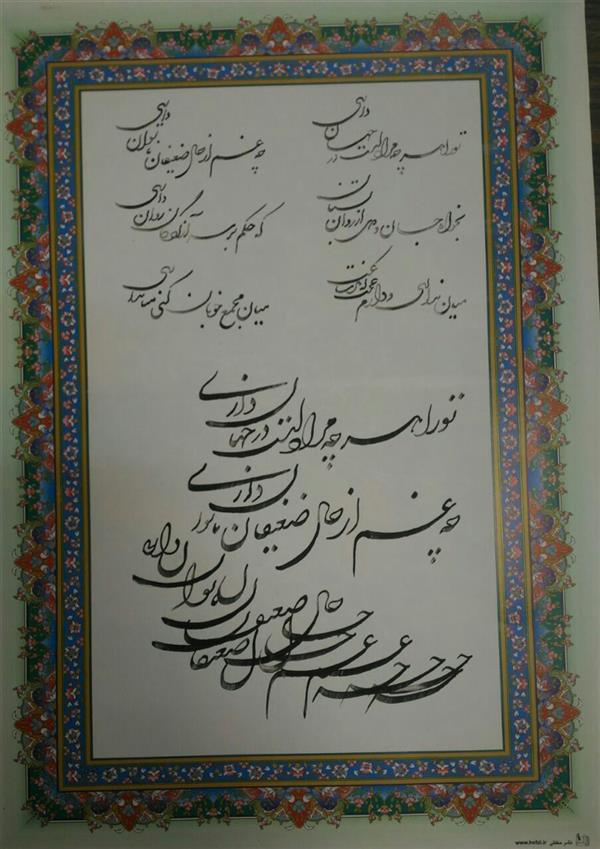 تو را هر چه مراد است در جهان داری
چه غم از حال ضعیفان ناتوان داری
بخواه جان و دل از روان بستان
که حکم بر سر آزادگان روان داری
میان نداری و دارم عجب که هر ساعت
میان مجمع خوبان کنی میانداری
تو را هر چه مراد است در جهان داری
چه غم از حال ضعیفان ناتوان داری
چه غم حال ضعیفان ناتوان داری